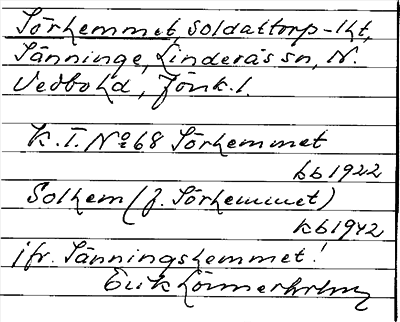 Sörhemmet, soldattorp - lht,
Sänninge, Linderås sn, N.
Vedbo hd, Jönk. l.
K. I. No 68 Sörhemmet
kb 1922
Solhem (f. Sörhemmet)
kb 1942
jfr. Sänningshemmet!
Erik